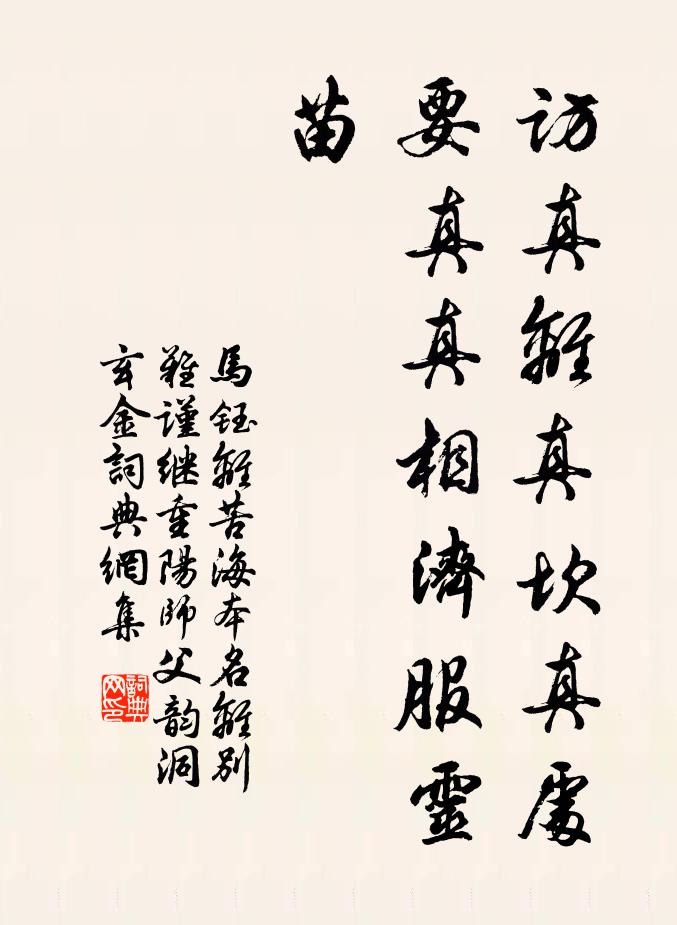 訪真離真坎真處
要真真相濟服靈
苗
馬鈺離苦海本名離別
難謹继重陽師父韵洞
玄金詞典網集
詞典
网印